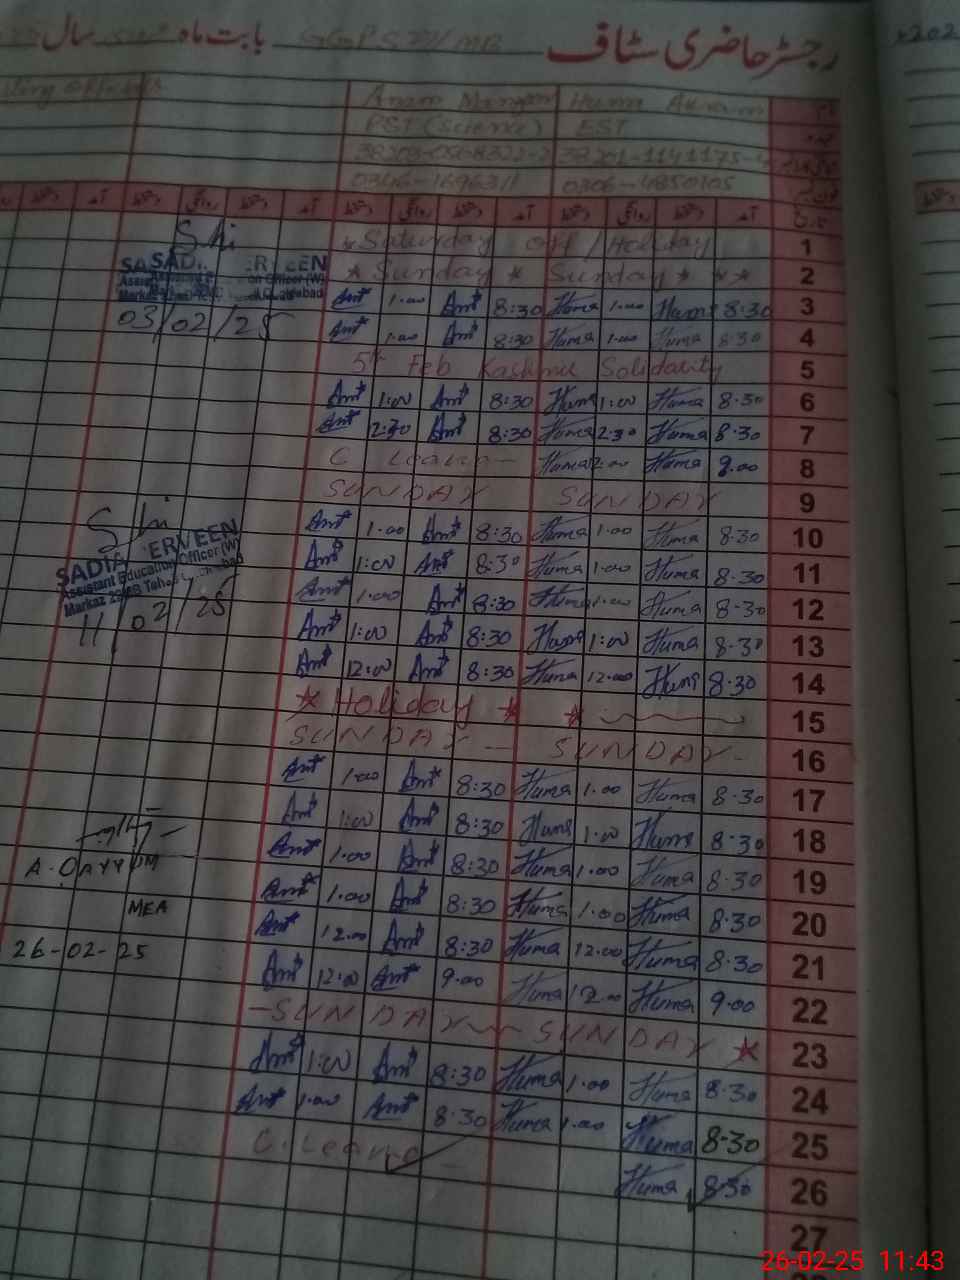 رجسٹر حاضری سٹاف GGPS بابت ماہ سال
Huma Akram
PST (Science) EST
0306-4850105
آمد دستخط روانگی دستخط آمد دستخط روانگی دستخط آمد دستخط روانگی دستخط
Saturday off / Holiday 1
* Sunday * Sunday * * * 2
Amt 1.00 Amt 8:30 Huma 1.00 Huma 8.30 3
Amt 1.00 Amt 8:30 Huma 1.00 Huma 8.30 4
5th Feb Kashmir Solidarity 5
Amt 1:00 Amt 8:30 Huma 1:00 Huma 8.30 6
Amt 2:30 Amt 8:30 Huma 2:30 Huma 8.30 7
C Leave — Huma 2.00 Huma 9.00 8
SUNDAY SUNDAY 9
Amt 1.00 Amt 8:30 Huma 1.00 Huma 8.30 10
Amt 1:00 Amt 8:30 Huma 1.00 Huma 8.30 11
Amt 1.00 Amt 8:30 Huma 1.00 Huma 8.30 12
Amt 1:00 Amt 8:30 Huma 1:00 Huma 8.30 13
Amt 12:00 Amt 8:30 Huma 12.00 Huma 8.30 14
* Holiday * * 15
SUNDAY — SUNDAY - 16
Amt 1.00 Amt 8:30 Huma 1.00 Huma 8.30 17
Amt 1:00 Amt 8:30 Huma 1.00 Huma 8.30 18
Amt 1.00 Amt 8:30 Huma 1.00 Huma 8.30 19
Amt 1.00 Amt 8:30 Huma 1.00 Huma 8.30 20
Amt 12.00 Amt 8:30 Huma 12.00 Huma 8.30 21
Amt 12:00 Amt 9.00 Huma 12.00 Huma 9.00 22
- SUNDAY SUNDAY * 23
Amt 1:00 Amt 8:30 Huma 1.00 Huma 8.30 24
Amt 1.00 Amt 8.30 Huma 1.00 Huma 8.30 25
C. Leave Huma 8.30 26
27
03/02/25
SADIA PERVEEN
Assistant Education Officer (W)
11/02/25
A. QAYYUM
MEA
26-02-25
26-02-25 11:43